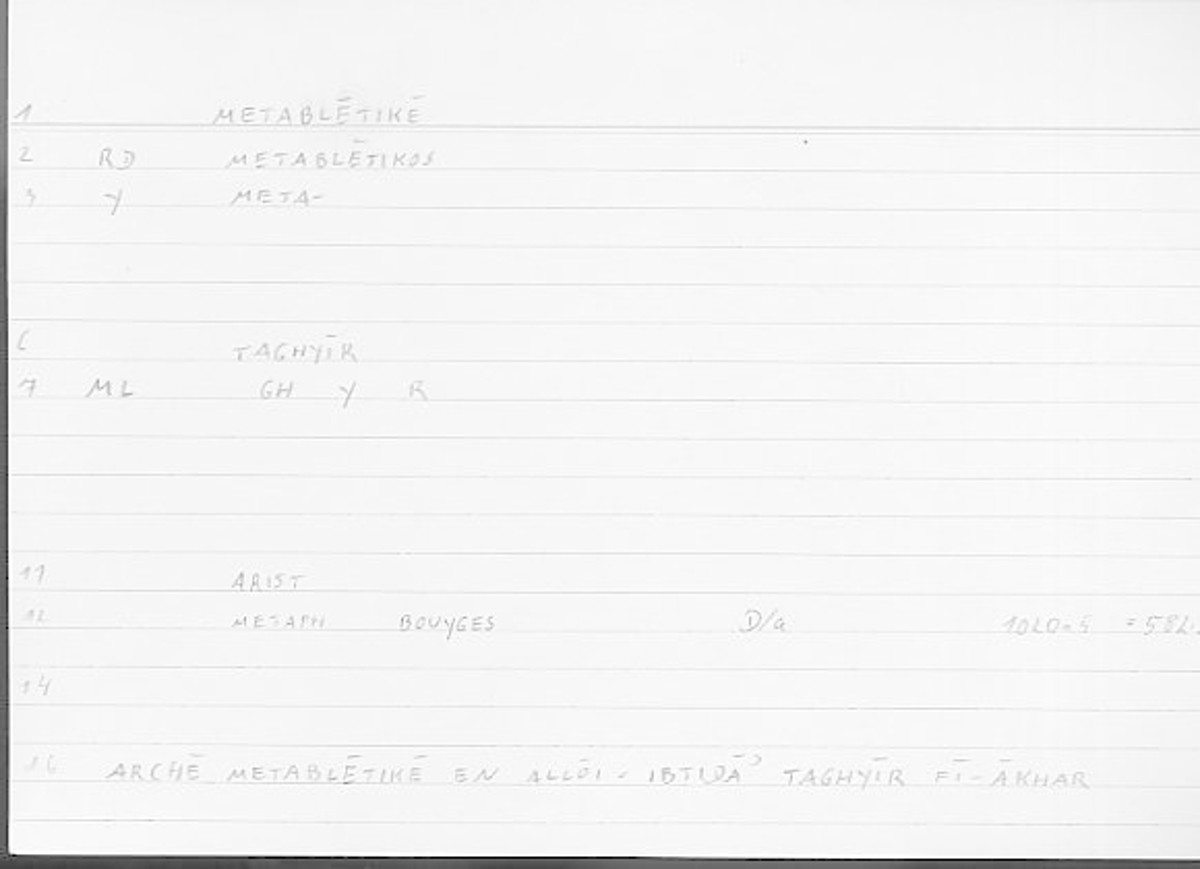 1 METABLĒTIKĒ
2 RD METABLĒTIKOS
3 Y META-
6 TAGHYĪR
7 ML GH Y R
11 ARIST
12 METAPH BOUYGES D/a 1020a5 =582.
14
16 ARCHĒ METABLĒTIKĒ EN ALLŌI - IBTIDĀʾ TAGHYĪR FĪ-ĀKHAR